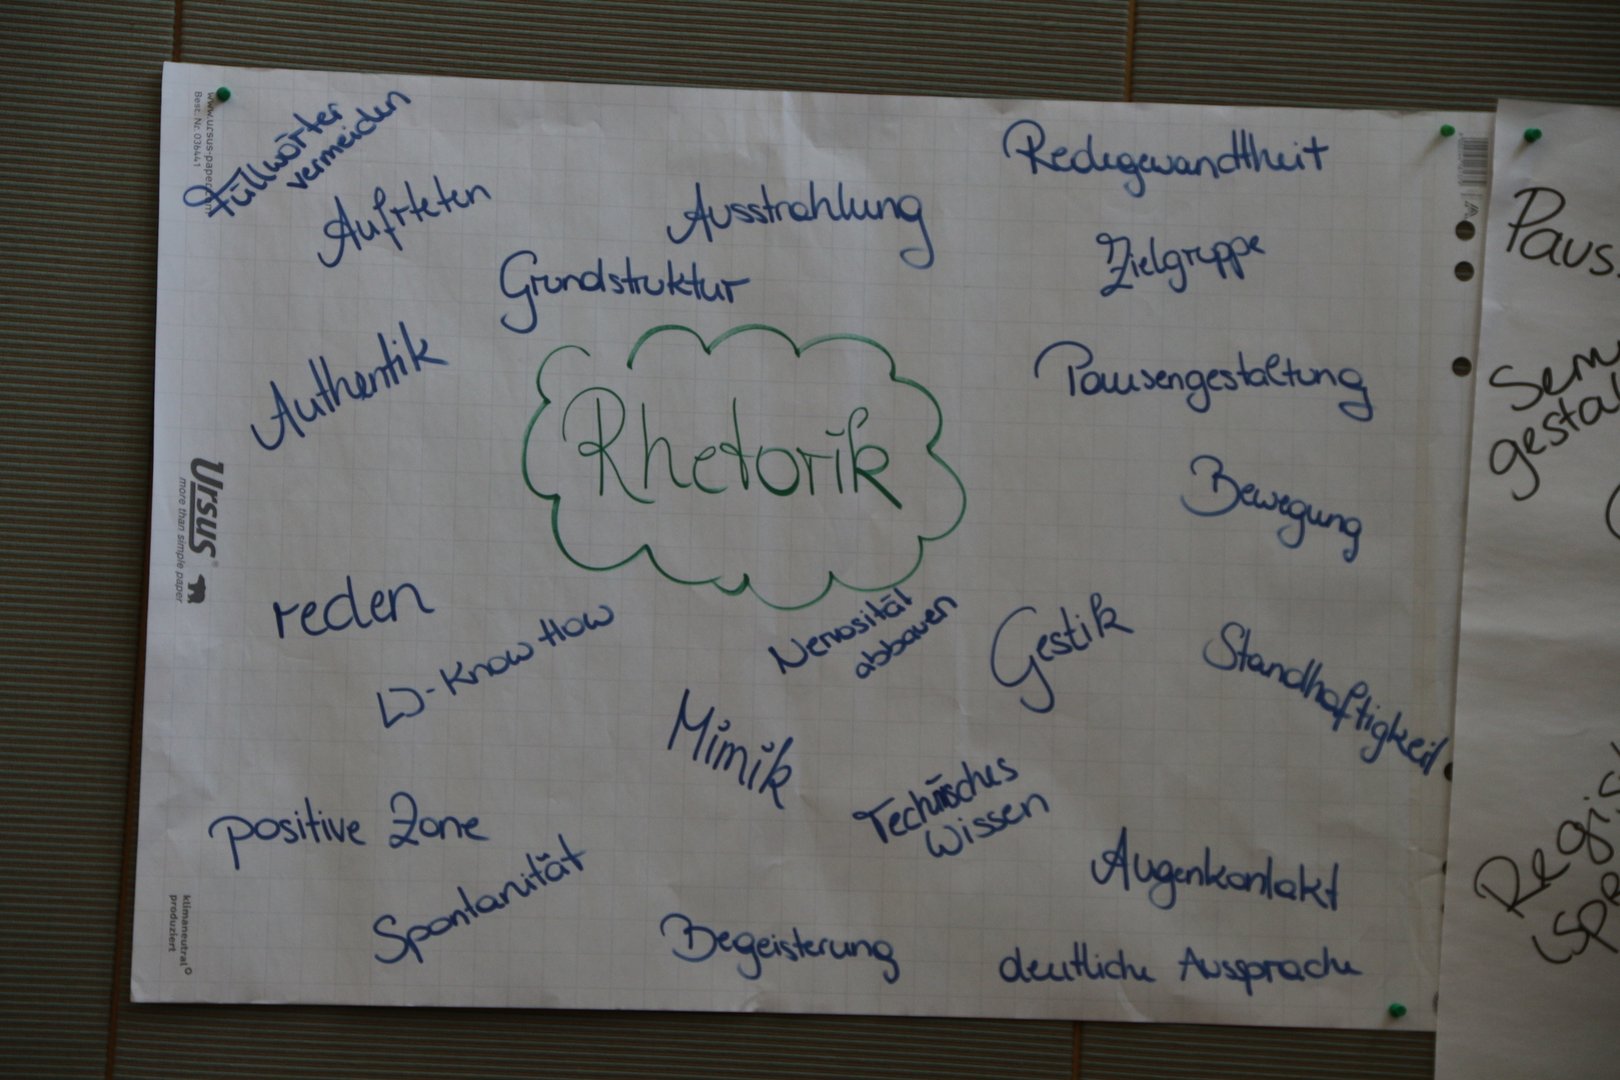 Füllwörter
vermeiden
Aufrteten
Ausstrahlung
Redegewandtheit
Grundstruktur
Zielgruppe
Authentik
Rhetorik
Pausengestaltung
Bewegung
reden
Know How
Nervosität
abbauen
Gestik
Standhaftigkeit
Mimik
Technisches
Wissen
positive Zone
Spontanität
Augenkontakt
Begeisterung
deutliche Aussprache
www.ursus-paper.com
Best. Nr. 036441
Ursus®
more than simple paper
klimaneutral
produziert
Paus
Sem
gestal
Regis
spr